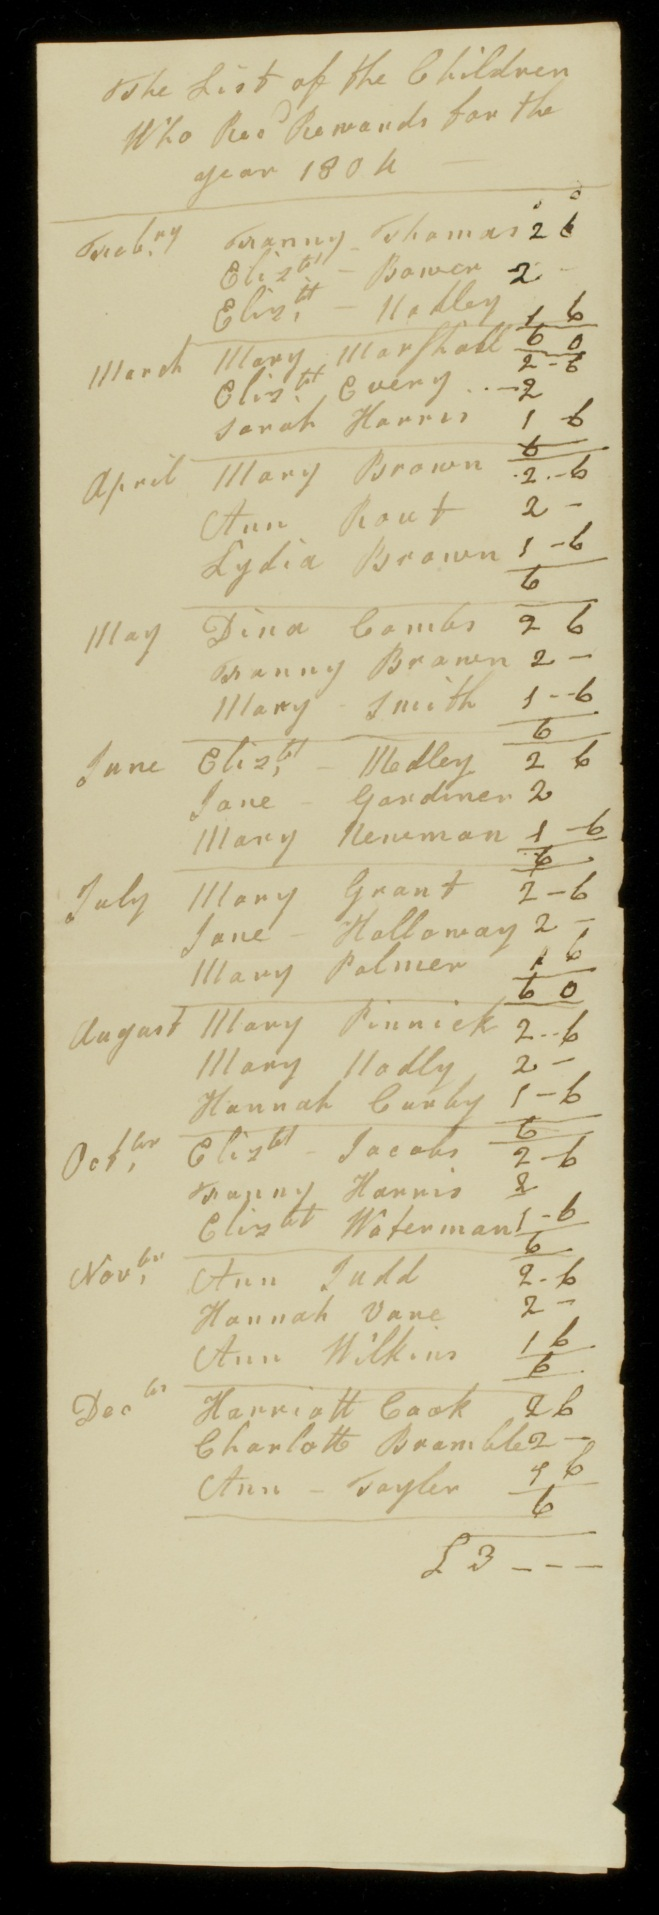 The List of the Children
Who Recd Rewards for the
year 1804 —
s d
Feb.ry Franny Thomas 2 6
Elizbt - Bower 2 -
Eliz.bt - Hadley 1 6
6 0
March Mary Marshall 2 - 6
Eliz.bt Every .. - 2
Sarah Harris 1 - 6
6
April Mary Brown 2 . - 6
Ann Rout 2 -
Lydia Brown 1 - 6
6
May Dina Combs 2 6
Franny Brown 2 -
Mary - Smith 1 - - 6
6
June Eliz,bt - Medley 2 6
Jane - Gardiner 2
Mary Newman 1 - 6
6
July Mary Grant 2 - 6
Jane - Holloway 2 -
Mary Palmer 1 6
6 0
August Mary Pinnick 2 .. 6
Mary Hadly 2 -
Hannah Curby 1 - 6
6
Oct,br Elizbt - Jacobs 2 - 6
Franny Harris 2
Elizbt Waterman 1 - 6
6
Nov,br Ann Judd 2 - 6
Hannah Vane 2 -
Ann Wilkins 1 6
6
Decbr Harriott Cook 2 6
Charlott Bramble 2 -
Ann - Tayler 1 6
6
£ 3 - - -